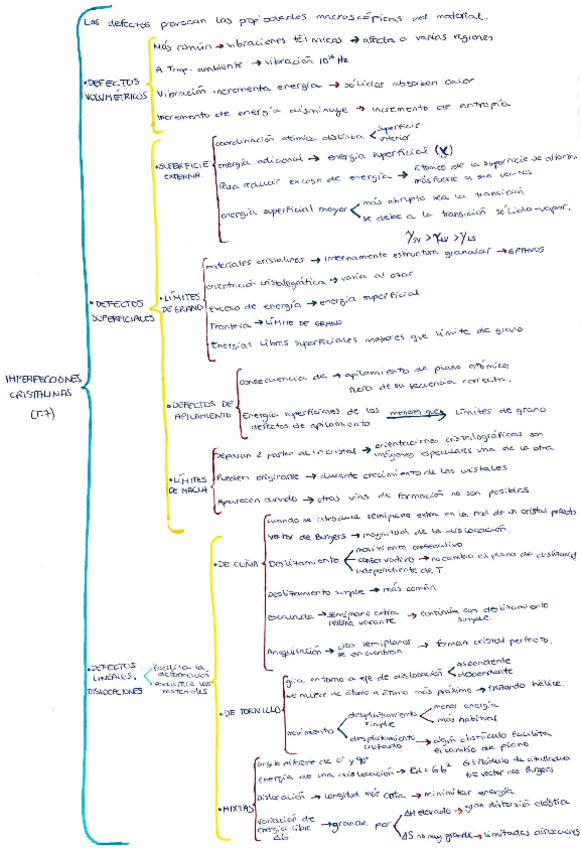 Los defectos provocan las propiedades macroscópicas del material.
IMPERFECCIONES
CRISTALINAS
(T.7)
• DEFECTOS
VOLUMÉTRICOS
Más común → vibraciones térmicas → afecta a varias regiones
A Temp. ambiente → vibración 10 Hz
Vibración incrementa energía → sólidos absorben calor
Incremento de energía disminuye → incremento de entropía
• DEFECTOS
SUPERFICIALES
• SUPERFICIE
EXTERNA
coordinación atómica distinta
superficie
interior
energía adicional → energía superficial (γ)
Para reducir exceso de energía → átomos de la superficie se
más fuerte a sus
energía superficial mayor
más abrupta sea la transición
se debe a la transición sólido-vapor.
γSV > γLV > γLS
• LÍMITES
DE GRANO
materiales cristalinos → internamente estructura granular → GRANOS
orientación cristalográfica → varía al azar
Exceso de energía → energía superficial
Frontera → LÍMITE DE GRANO
Energías libres superficiales mayores que límite de grano
• DEFECTOS DE
APILAMIENTO
consecuencia de → apilamiento de plano atómico
fuera de su secuencia correcta.
Energía superficiales de los
defectos de apilamiento
menores que
límites de grano
• LÍMITES
DE MACLA
Separan 2 partes de un cristal → orientaciones cristalográficas son
imágenes especulares una de la otra
Pueden originarse → durante crecimiento de los cristales
Aparecen cuando → otras vías de formación no son posibles
• DEFECTOS
LINEALES.
DISLOCACIONES
facilita la
deformación
materiales
• DE CUÑA
cuando se introduce semiplano extra en la red de un cristal perfecto
vector de Burgers → magnitud de la dislocación.
Deslizamiento
movimiento consecutivo
conservativo → no cambia el plano de
independiente de T.
Deslizamiento simple → más común
→ semiplano extra
vacante
→ continúa con deslizamiento
simple.
Aniquilación → dos semiplanos
se encuentran
→ forman cristal perfecto.
• DE TORNILLO
gira entorno a eje de dislocación
ascendente
descendente
se mueve de átomo a átomo más próximo → trazando hélice.
movimiento
desplazamiento
simple
menor energía
más habitual
desplazamiento
cruzado
→ algún obstáculo facilita
el cambio de plano
• MIXTAS
ángulo mixtura de 0° y 90°
energía de una dislocación → Ed = G b²
G = Módulo de cizalladura
b = vector de Burgers
Dislocación → longitud más corta → minimizar energía
variación de
energía libre
ΔG
→ grande por
ΔH elevado → gran distorsión elástica
ΔS no muy grande → limitadas direcciones